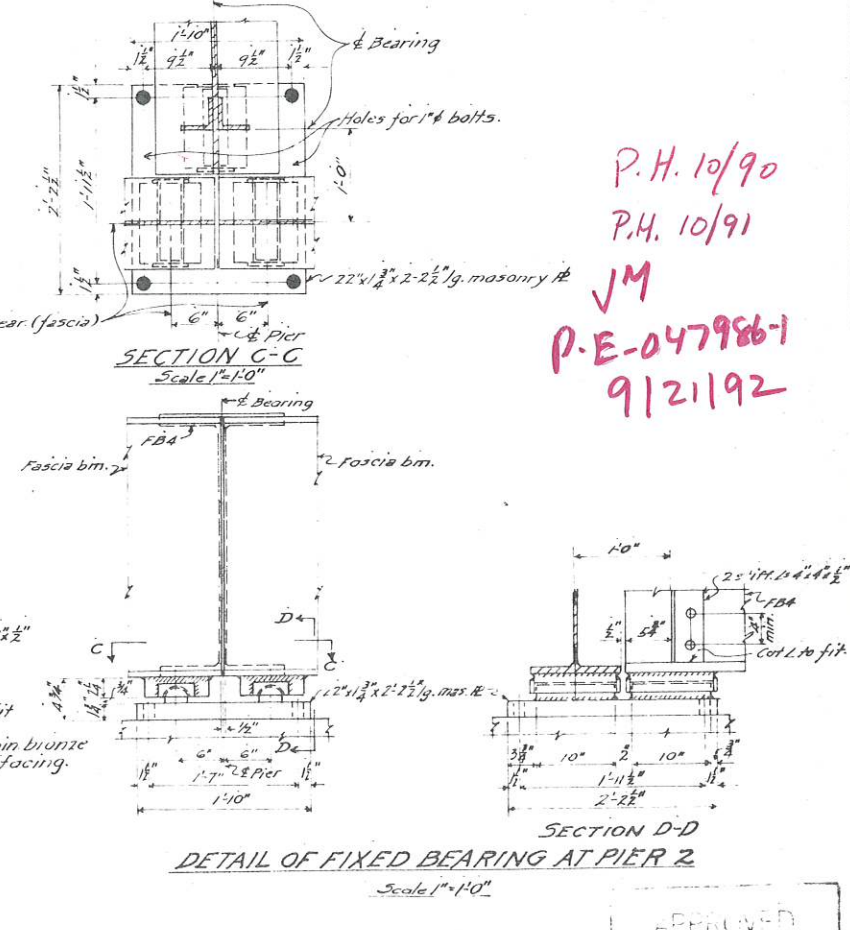 1'-10"
1½" 9½" 9½" 1½"
℄ Bearing
1½"
Holes for 1"φ bolts.
2'-2½"
1'-11½"
1'-0"
1½"
22"x1¾"x2'-2½" lg. masonry ℞
ear. (fascia)
6" 6"
℄ Pier
SECTION C-C
Scale 1"=1'-0"
P.H. 10/90
P.H. 10/91
JM
P.E-047986-1
9/21/92
℄ Bearing
FB4
Fascia bm.
Fascia bm.
D
C
C
"x½"
4¾"
¾"
it
in bronze
facing.
½"
D
6" 6"
1½" 1'-7" ℄ Pier 1½"
1'-10"
22"x1¾"x2'-2½" lg. mas. ℞
1'-0"
FB4
½"
4"
min.
Cut L to fit.
10" 2" 10"
1½" 1'-11½" 1½"
2'-2½"
SECTION D-D
DETAIL OF FIXED BEARING AT PIER 2
Scale 1"=1'-0"
APPROVED